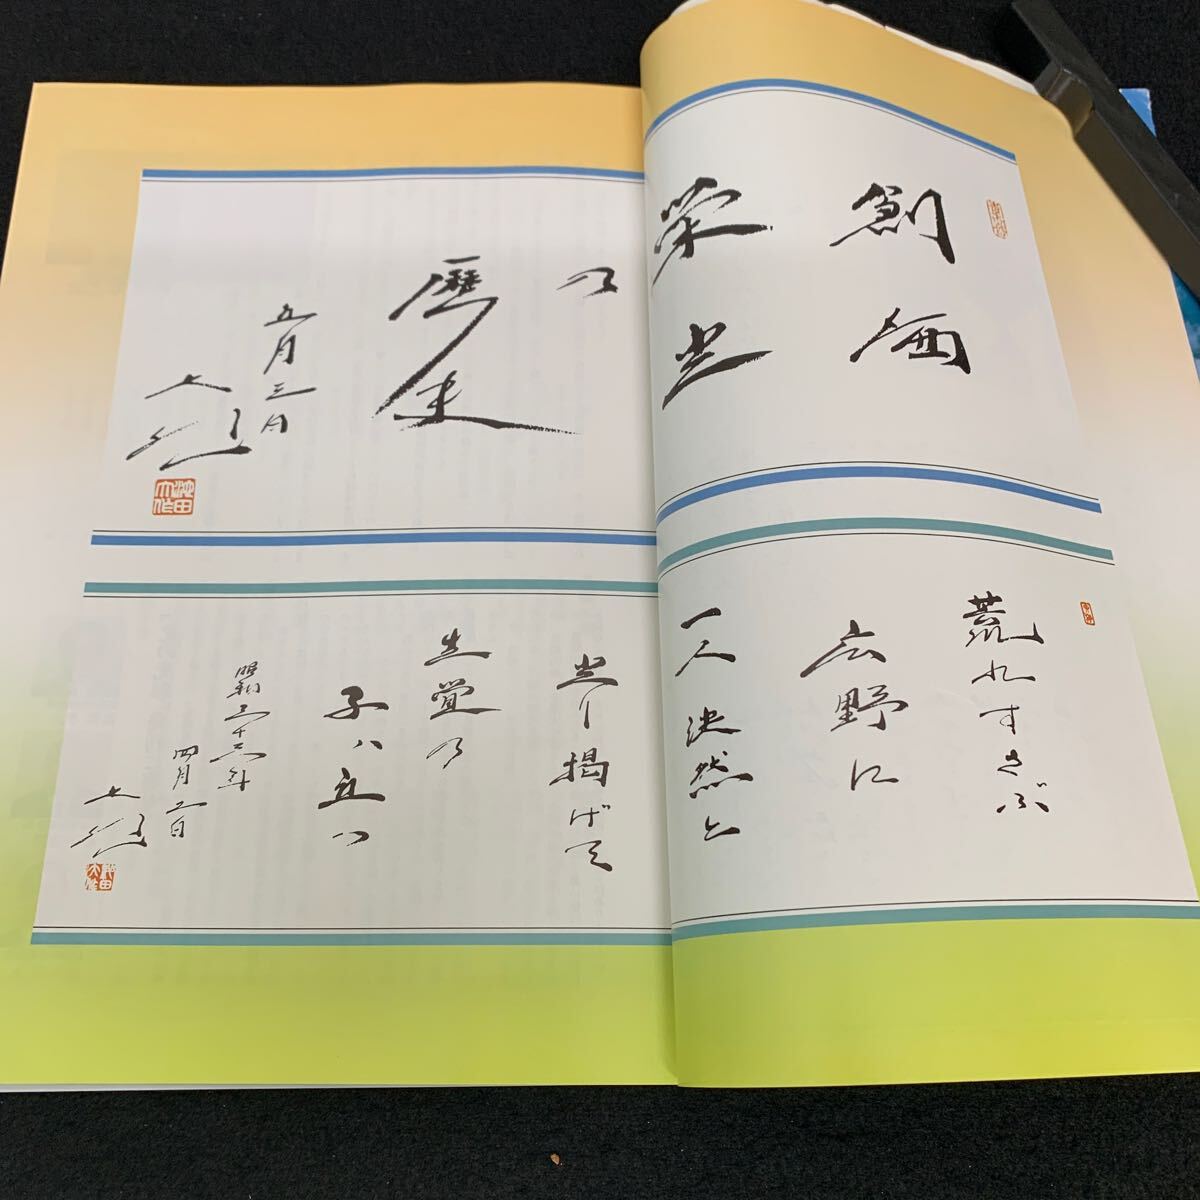 創価
栄光
の
歴史
五月三日
大作
池田大作
荒れすさぶ
広野に
一人決然と
光り掲げて
先覚の
子は立つ
昭和三十三年
四月二日
大作
池田大作